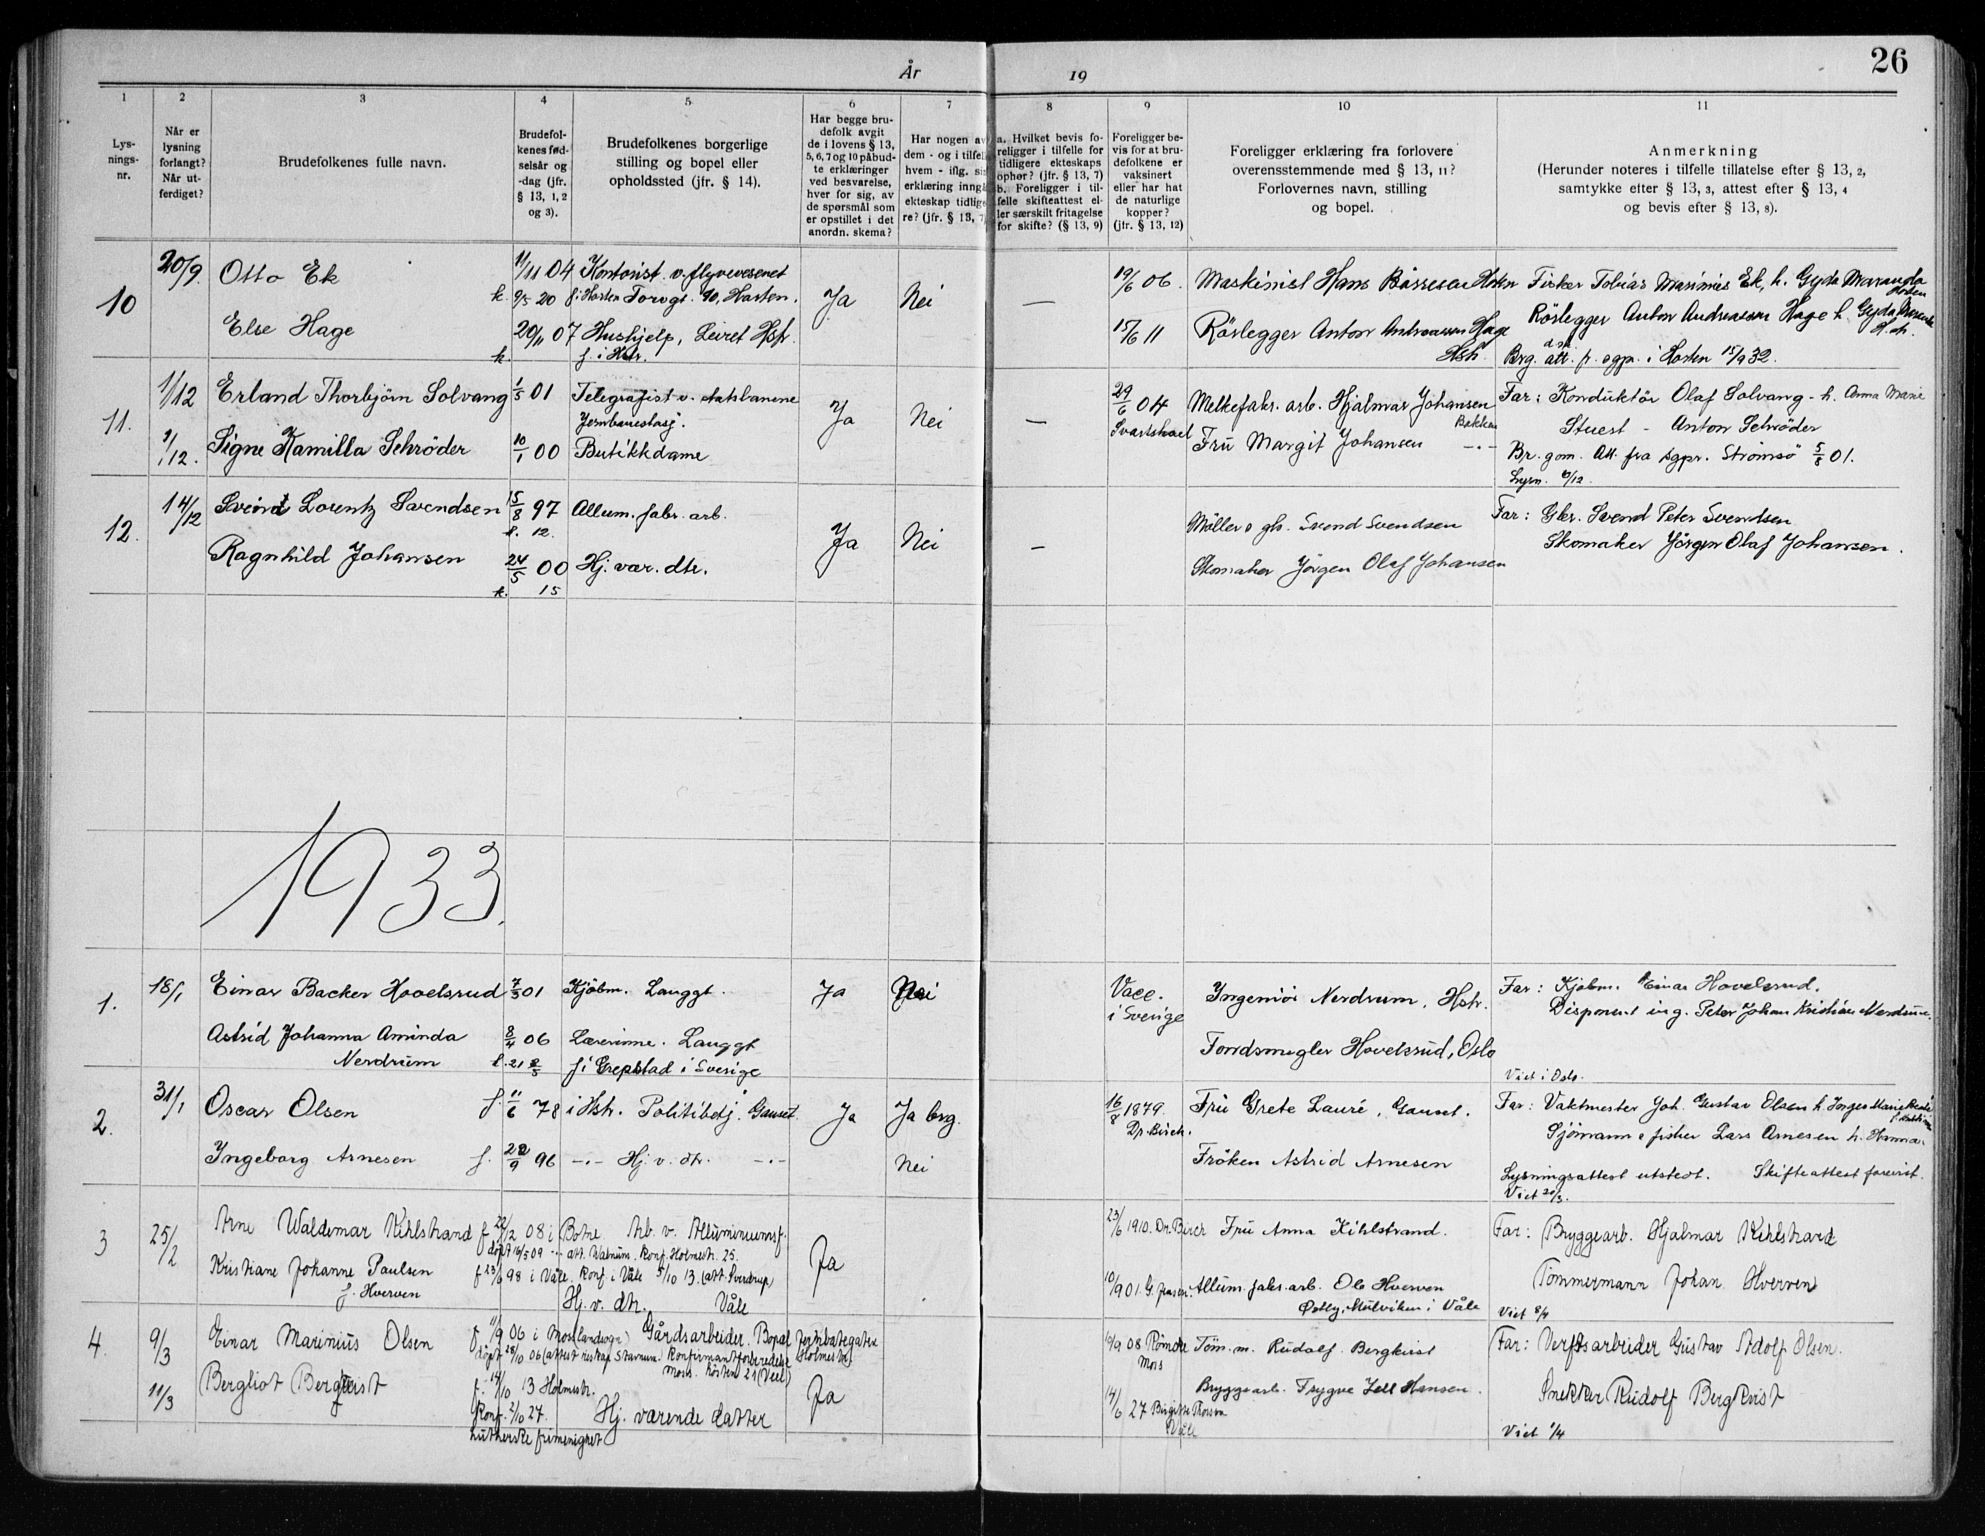 År 19
26
1 2 3 4 5 6 7 8 9 10 11
Lys-
nings-
nr.
Når er
lysning
forlangt?
Når ut-
ferdiget?
Brudefolkenes fulle navn.
Brudefol-
kenes fød-
selsår og
-dag (jfr.
§ 13, 1, 2
og 3).
Brudefolkenes borgerlige
stilling og bopel eller
opholdssted (jfr. § 14).
Har begge bru-
defolk avgit
de i lovens § 13,
5, 6, 7 og 10 påbud-
te erklæringer
ved besvarelse,
hver for sig, av
de spørsmål som
er opstillet i det
anordn. skema?
Har nogen av
dem - og i tilfelle
hvem - iflg. sin
erklæring inngått
ekteskap tidlige-
re? (jfr. § 13, 7)
a. Hvilket bevis fo-
religger i tilfelle for
tidligere ekteskaps
ophør? (jfr. § 13, 7)
b. Foreligger i til-
felle skifteattest el-
ler særskilt fritagelse
for skifte? (§ 13, 9)
Foreligger be-
vis for at bru-
defolkene er
vaksinert
eller har hat
de naturlige
kopper?
(jfr. § 13, 12)
Foreligger erklæring fra forlovere
overensstemmende med § 13, 11?
Forlovernes navn, stilling
og bopel.
Anmerkning
(Herunder noteres i tilfelle tillatelse efter § 13, 2,
samtykke efter § 13, 3, attest efter § 13, 4
og bevis efter § 13, 8).
10 20/9. Otto Ek 11/11 04 Kontorist v. flyvevesenet Ja Nei — 19/6 06. Maskinist Hans Bårresen Horten Fisker Tobias Marinius Ek, h. Gyda
k. 9/5 20 f. i Horten Torvgt. 90, Horten.
Else Hage 20/11 07 Hushjelp, Leiret Hstr. 15/6 11 Rörlegger Anton Andreassen Hage Hstr. Rörlegger Anton Andreassen Hage h. Gyda
k. f. i Hstr. Brg. att. f. sgpr. i Horten 15/9 32.
11. 1/12 Erland Thorbjörn Solvang 1/5 01 Telegrafist v. statsbanene Ja Nei — 29/6 04 Melkefabr. arb. Hjalmar Johansen Bakken Far: Konduktör Olaf Solvang - h. Anna Marie
Jernbanestasj. Svartskael Stuert - Anton Schröder
1/12. Signe Kamilla Schröder 10/1 00 Butikkdame Fru Margit Johansen -"- Br. gom. Att. fra sgpr. Strömsö 5/8 01.
12. 14/12 Sveind Lorentz Svendsen 15/8 97 Allum. fabr. arb. Ja Nei — Möller o gb. Svend Svendsen Far: Gbr. Svend Peter Svendsen
k. 12.
Ragnhild Johansen 24/5 00 Hj. vær. dtr. Skomaker Jörgen Olaf Johansen Skomaker Jörgen Olaf Johansen.
k. 15
1933.
1. 18/1 Einar Backer Hovelsrud 7/5 01 Kjöbm. Langgt. Ja Nei Vacc. i Sverige Ingeniör Nerdrum, Hstr. Far: Kjöbm. Einar Hovelsrud.
Disponent ing. Peter Johan Kristian Nerdrum.
Astrid Johanna Aminda Nerdrum 8/4 06 Lærerinne. Langgt Fondsmegler Hovelsrud, Oslo
k. 21 f. i Grepstad i Sverige Viet i Oslo.
2. 31/1 Oscar Olsen f. 11/6 78 i Hstr. Politibetj. Gauset. Ja Ja brg. 16/8 1879. Dr. Birch. Fru Grete Lauré, Gauset. Far: Vaktmester Joh. Gustav Olsen h. Inger Marie
Sjömann o fisker Lars Arnesen h. Hanna.
Ingeborg Arnesen f. 22/9 96 -"- Hj. v. dtr. -"- Nei Fröken Astrid Arnesen
Lysningsattest utstedt. Skifteattest forevist.
Viet 20/3.
3 25/2 Arne Waldemar Kihlstrand f 22/2 08 i Botne Arb. v. Alluminiumsf. Ja 23/6 1910. Dr. Birch Fru Anna Kihlstrand. Far: Bryggearb. Hjalmar Kihlstrand
döpt 16/5 09 -"- att. Walnum. Konf. Holmestr. 25.
Kristiane Johanne Paulsen f. Hverven f 23/6 98 i Våle. Konf. i Våle 5/10 13. (att. Sverdrup) Tömmermann Johan Hverven
Hj. v. dtr. Våle 10/9 01. G. Jensen. Allum. fabr. arb. Ole Hverven
Østby, Mulviken i Våle Viet 8/4
4. 9/3 Einar Marinius Olsen f. 11/9 06 i Moss landsogn) Gårdsarbeider. Bopæl Jernbanegaten Holmestr. 10/9 08 Römcke Moss Töm. m. Rudolf Bergkvist Far: Verftsarbeider Gustav Adolf Olsen.
döpt 28/10 06 (attest reskap. Stavnum. Konfirmantforberedelse Moss. hösten 21 (Viel)
11/3 Bergliot Bergkvist f. 14/10 13 Holmestr. Ja Bryggearb. Trygve Jell Hansen. Snekker Rudolf Bergkvist
Konf. 2/10 27. Hj. værende datter 14/6 27 Birgitte Thorsen Våle
Lutherske frimenighet Viet 1/4